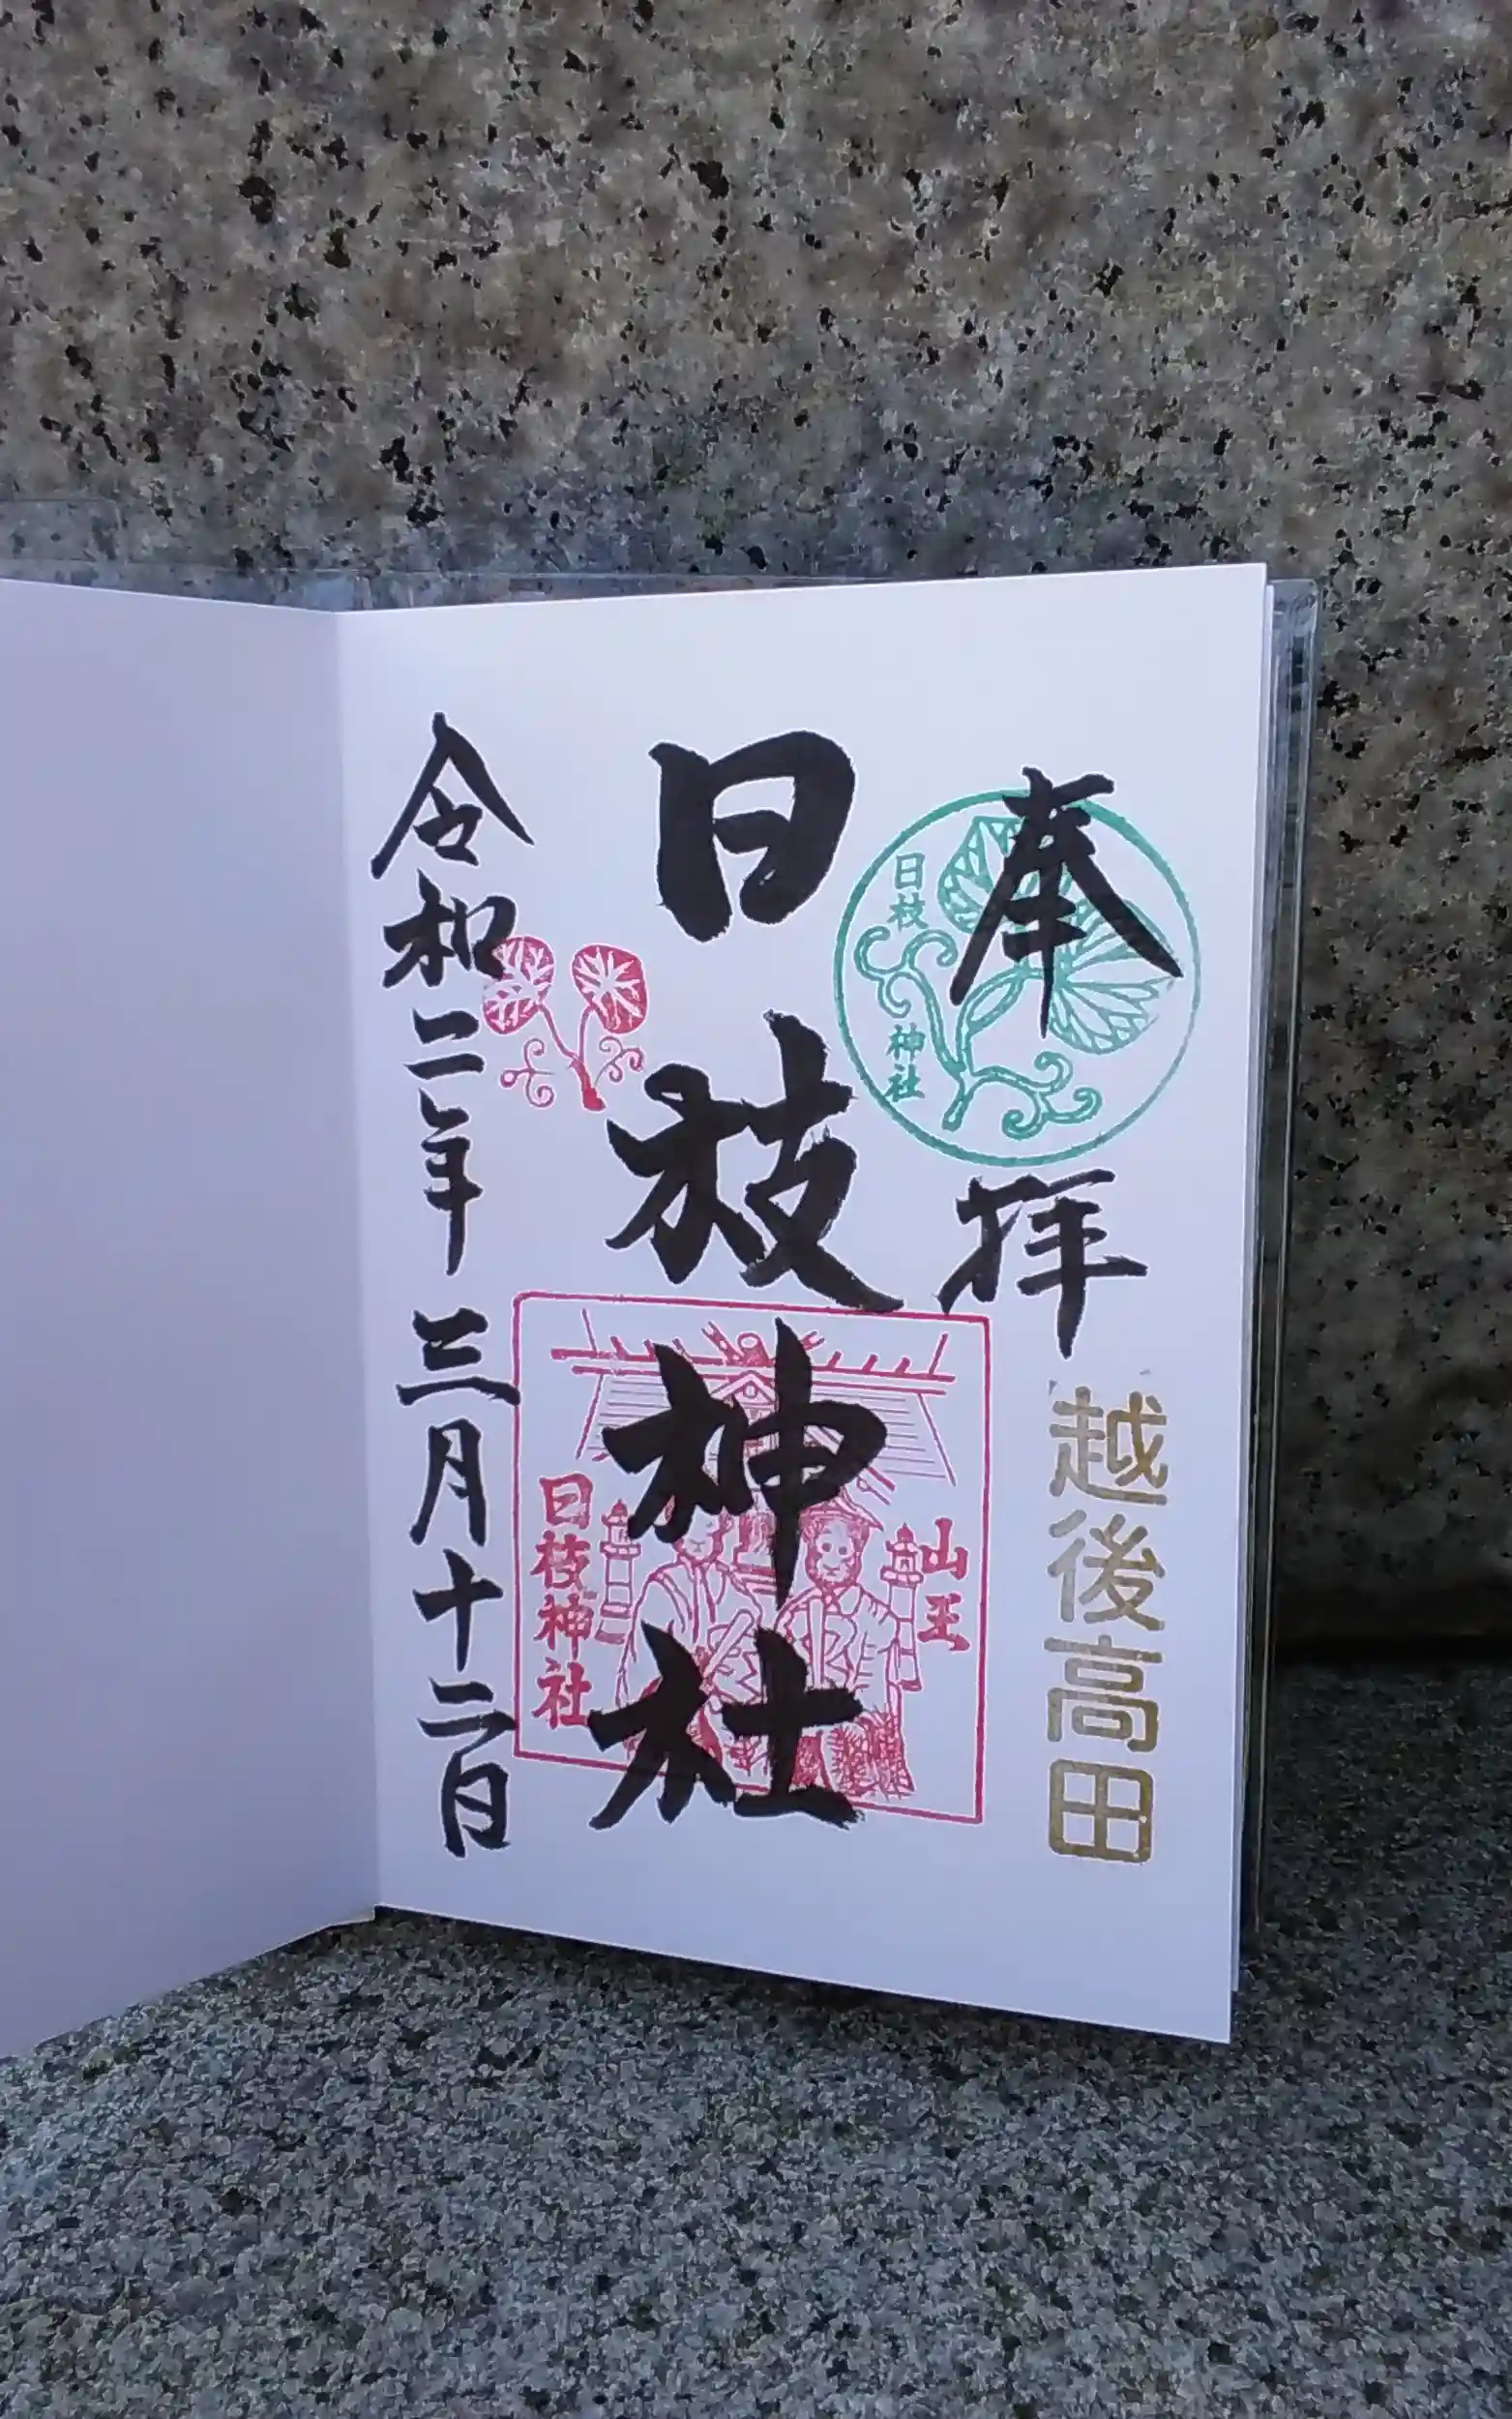 奉拝
越後高田
日枝
神社
日枝神社
山王
日枝神社
令和二年三月十二日